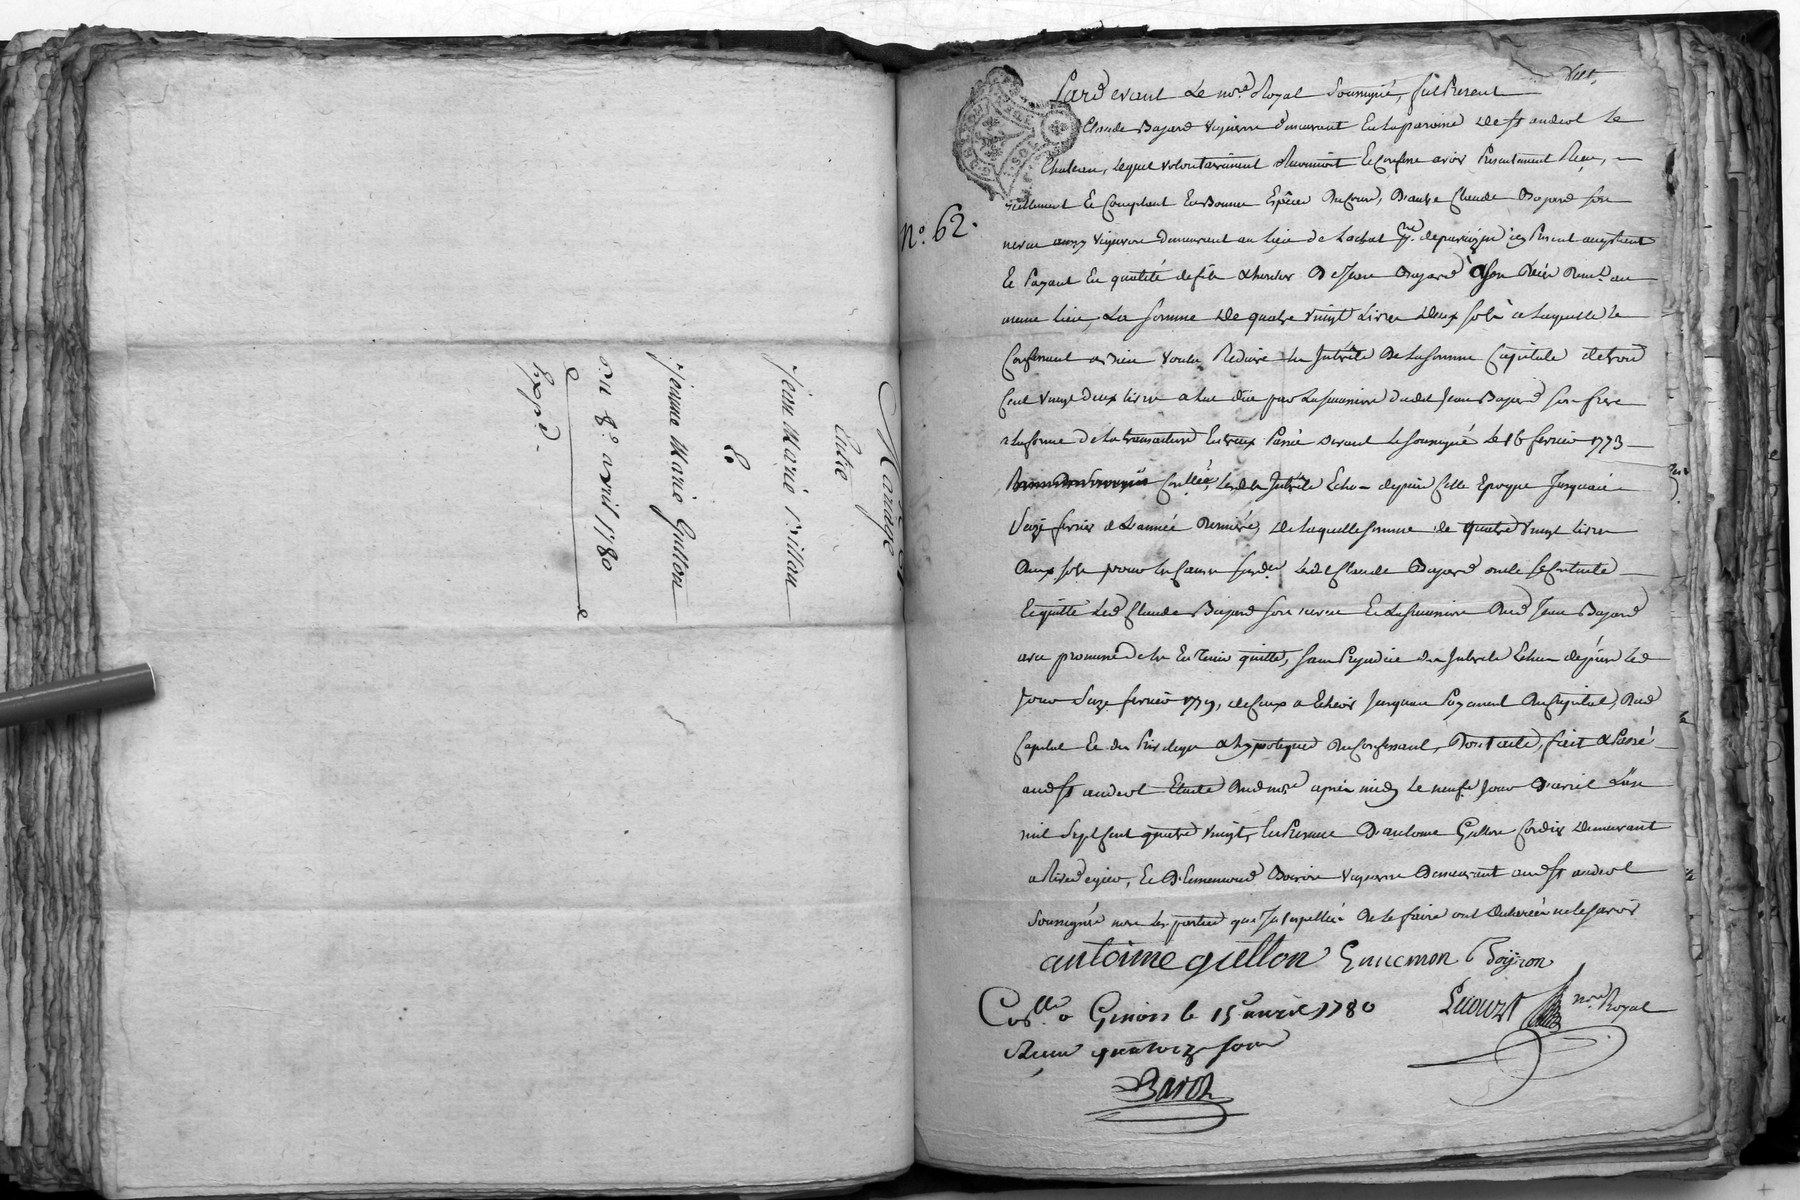 Mariage
Entre
Jean Marie
&
Jeanne Marie Gullon
du 8e avril 1780
Expé
No. 62.
Pard evant Le nore Royal Soussigné, fut Present
Claude Bajard vigneron demeurant En la paroisse de St andeol le
Chateau, lequel volontairement Reconnoit & Confesse avoir Presentement Reçu,
réellement & Comptant En Bonnes Espèces du Cours, D'autre Claude Bajard son
neveu aussy vigneron demeurant au Lieu de Lachal
& Payant En qualité de fils & heritier De Jean Bajard
meme Lieu, La somme De quatre vingt Livres Deux sols à laquelle le
Confessant a Bien voulu Reduire les Interets De La somme Capitale de trois
Cent vingt Deux livres a lui düe par Dudit Jean Bajard son frere
La transaction Entreux Passée Devant Le soussigné Le 16 fevrier 1773
Interets Echus depuis Cette Epoque Jusqu'au
Seize fevrier de L'année Derniere, De laquelle somme de quatre vingt livres
Deux sols pour les Causes Led Claude Bajard se Contente
& quitte Led Claude Bajard son neveu & Dud Jean Bajard
avec promesse de les En Tenir quitte, sans Prejudice des Interets Echus depuis Led
Jour Seize fevrier 1779, de Ceux a Echeoir Jusquau Payement du Capital, Dud
Capital & des Privileges & hypoteques du Confessant, Dont acte, fait & Passé
aud St andeol Etude Dud nore après midy Le neufe Jour D'avril L'an
mil Sept Cent quatre vingt, En Presence D'antoine Gullon Cordier Demeurant
a Rive de gier, & D'Ennemond Boiron vigneron Demeurant aud St andeol
Soussignés non les parties que Interpellées De le faire ont Declarées ne le savoir
antoine gullon Ennemon Boiron
nore Royal
Collé a Givors le 15 avril 1780
Reçu quatorze sous
Baron